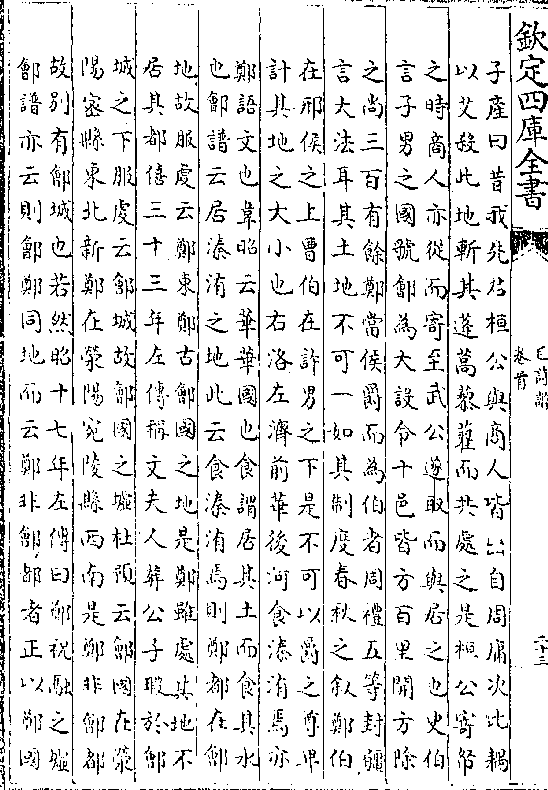 欽定四庫全書
毛詩譜
卷首
二十三
子產曰昔我先君桓公與商人皆出自周庸次比耦
以艾殺此地斬其蓬蒿藜藋而共處之是桓公寄帑
之時商人亦從而寄至武公遂取而與居之也史伯
言子男之國虢鄶為大設令十邑皆方百里開方除
之尚三百有餘鄭當侯爵而為伯者周禮五等封疆
言大法耳其土地不可一如其制度春秋之叙鄭伯
在邢侯之上曹伯在許男之下是不可以爵之尊卑
計其地之大小也右洛左濟前華後河食溱洧焉亦
鄭語文也韋昭云華華國也食謂居其土而食其水
也鄶譜云居溱洧之地此云食溱洧焉則鄭都在鄶
地故服虔云鄭東鄭古鄶國之地是鄭雖處其地不
居其都僖三十三年左傳稱文夫人葬公子瑕於鄶
城之下服虔云鄶城故鄶國之墟杜預云鄶國在滎
陽密縣東北新鄭在滎陽宛陵縣西南是鄭非鄶都
故别有鄶城也若然昭十七年左傳曰鄭祝融之墟
鄶譜亦云則鄶鄭同地而云鄭非鄶都者正以鄶國